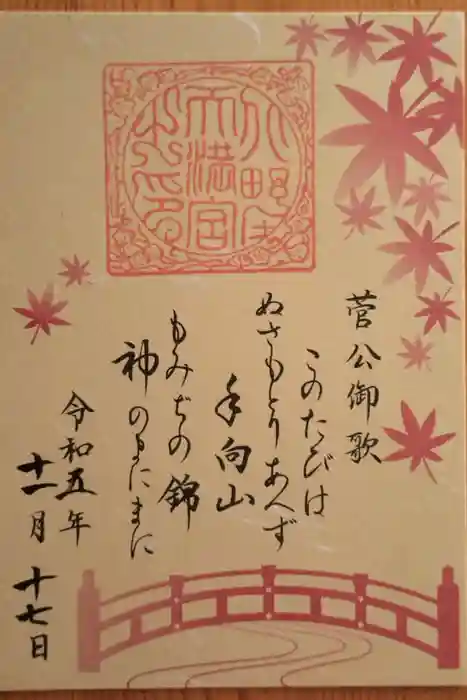 北野
天満宮
菅公御歌
このたびは
ぬさもとりあへず
手向山
もみぢの錦
神のまにまに
令和五年
十一月十七日